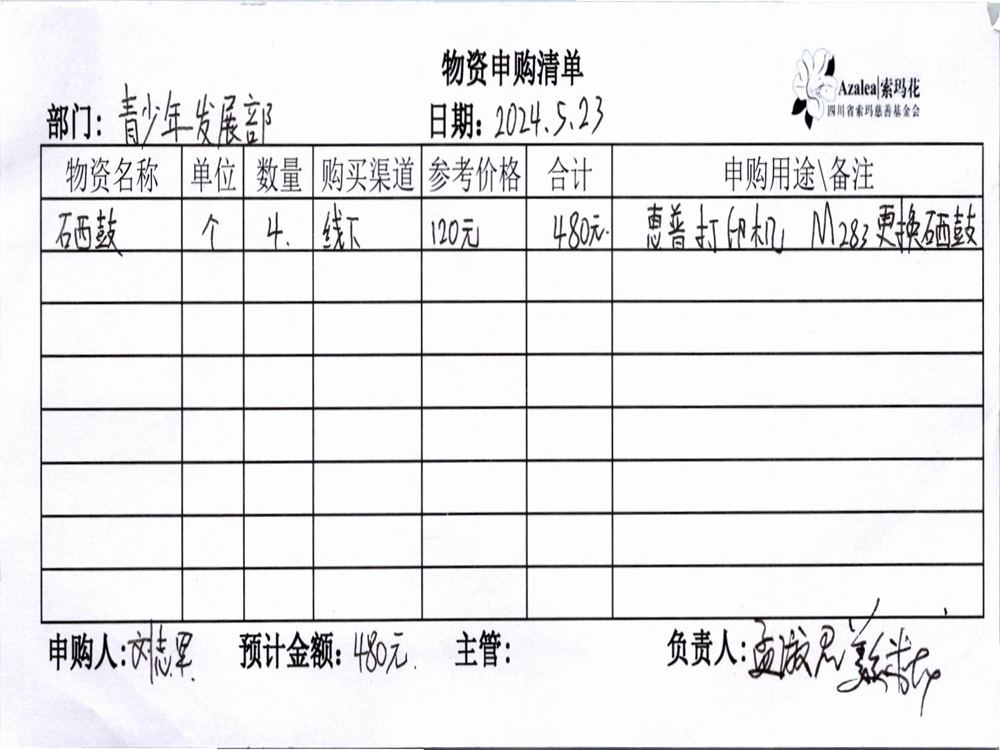 物资申购清单
Azalea|索玛花
四川省索玛慈善基金会
部门：青少年发展部 日期：2024.5.23
物资名称 单位 数量 购买渠道 参考价格 合计 申购用途\备注
硒鼓 个 4. 线下 120元 480元. 惠普打印机 M283更换硒鼓
申购人：刘志军 预计金额：480元. 主管： 负责人：孟淑君